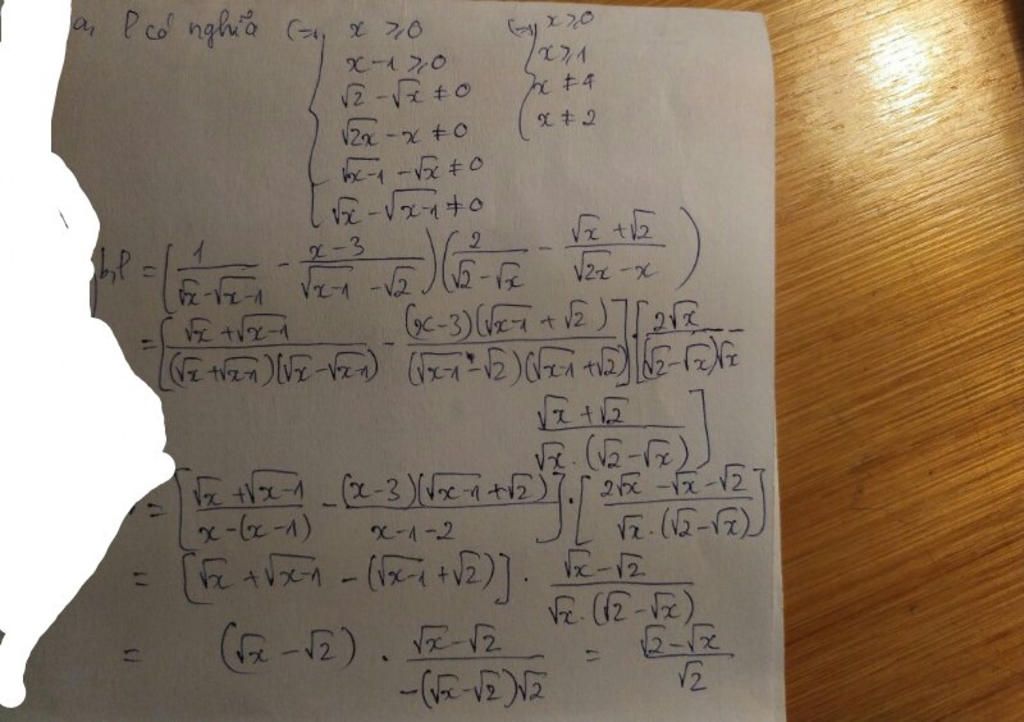 a, P có nghĩa <=> { x ⩾ 0 <=> { x ⩾ 0
x - 1 ⩾ 0 x ⩾ 1
√2 - √x ≠ 0 x ≠ 4
√2x - x ≠ 0 x ≠ 2
√(x-1) - √x ≠ 0
√x - √(x-1) ≠ 0
b, P = (1/(√x - √(x-1)) - (x-3)/(√(x-1) - √2))(2/(√2 - √x) - (√x + √2)/(√2x - x))
= [(√x + √(x-1))/((√x + √(x-1))(√x - √(x-1))) - ((x-3)(√(x-1) + √2))/((√(x-1) - √2)(√(x-1) + √2))].[2√x/((√2 - √x)√x) -
(√x + √2)/(√x.(√2 - √x))]
= [(√x + √(x-1))/(x - (x-1)) - ((x-3)(√(x-1) + √2))/(x-1-2)].[(2√x - √x - √2)/(√x.(√2 - √x))]
= [√x + √(x-1) - (√(x-1) + √2)] . (√x - √2)/(√x.(√2 - √x))
= (√x - √2) . (√x - √2)/(-(√x - √2)√2) = (√2 - √x)/√2